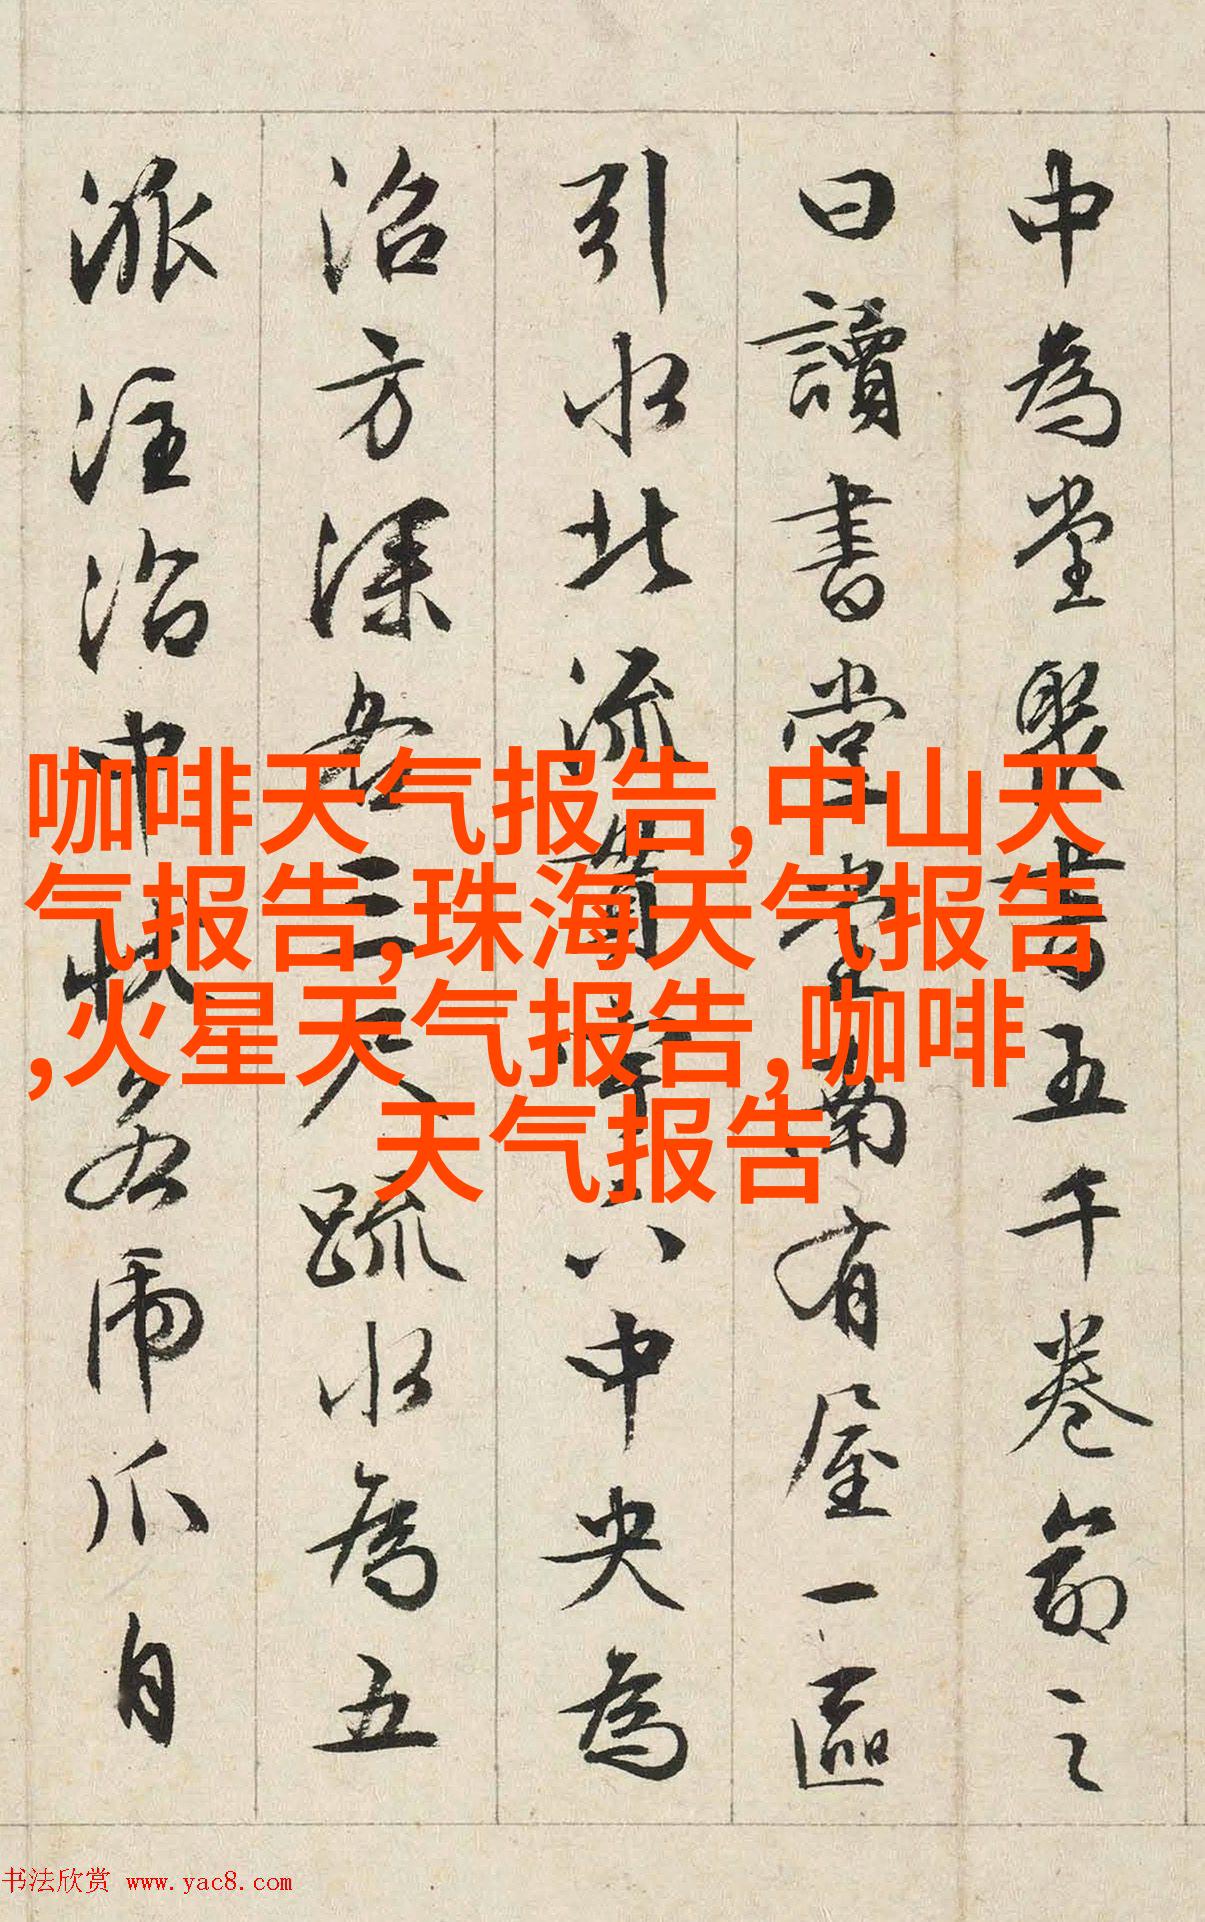 中為堂聚書五千卷命之
曰讀書堂堂南有屋一區
引水北流貫宇下中央為
沼方深各三尺疏水為五
派注沼中狀若虎爪自
咖啡天气报告,中山天
气报告,珠海天气报告
,火星天气报告,咖啡
天气报告
书法欣赏 www.yac8.com